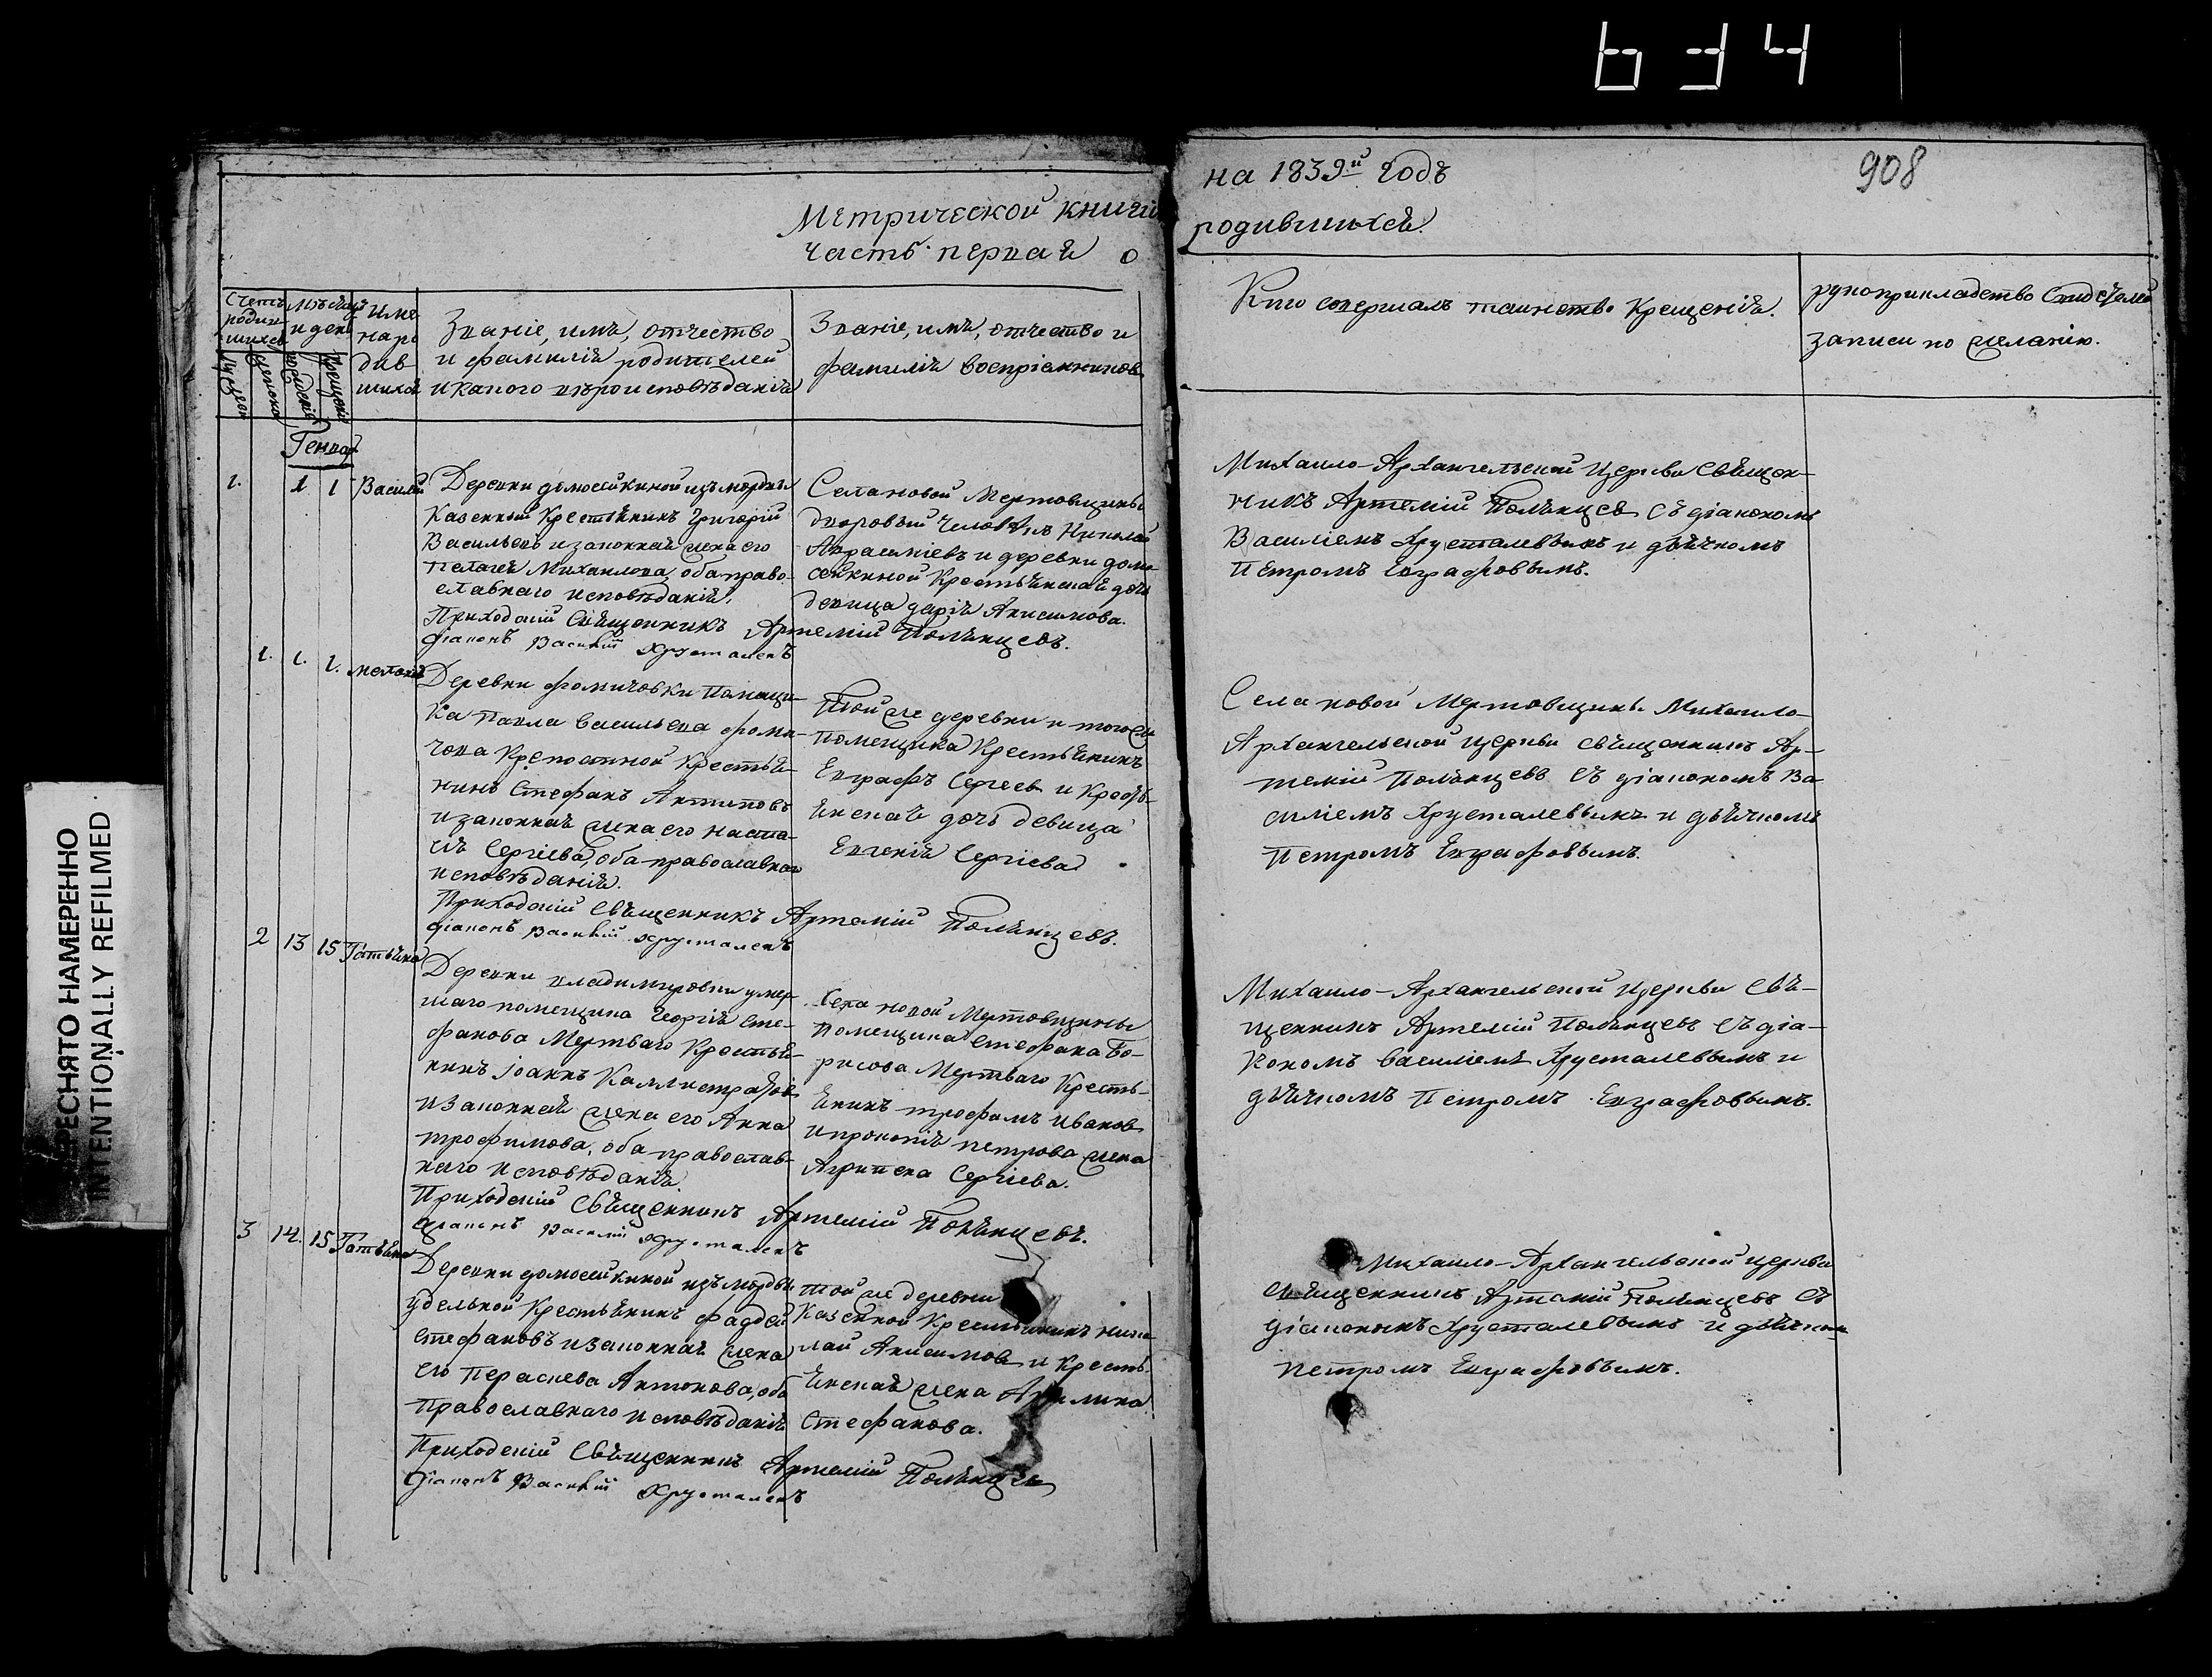 634
908
ПЕРЕСНЯТО НАМЕРЕННО
INTENTIONALLY REFILMED
Метрической книги на 1839й годъ
часть первая о родившихся.
Счетъ родившихся
Мѣсяцъ и день
Имена родившихся
Званіе, имя, отчество
и фамилія родителей
и какого вѣроисповѣданія
Званіе, имя, отчество и
фамилія воспріемниковъ
Кто совершалъ таинство крещенія.
рукоприкладство свидѣтелей
записи по желанію.
Генварь
1. 1 1 Василій
Деревни домосейкиной изъ мордвы
казенный крестьянинъ Григорій
Васильевъ и законная жена его
Пелагея Михаилова, оба право-
славнаго исповѣданія.
Приходскій Священникъ Артемій Полянцевъ.
діаконъ Василій Хрусталевъ
Села новой Мертовщины
дворовый человѣкъ Николай
Авраамиевъ и деревни домо-
сейкиной крестьянская дочь
девица дарія Анисимова.
Михаило-Архангельской церкви Священ-
никъ Артемій Полянцевъ съ діакономъ
Василіемъ Хрусталевымъ и дьячкомъ
Петромъ Евграфовымъ.
1. 1. 1. мелания
Деревни фомичовки помещи-
ка Павла Васильева фоми-
чова крепостной крестья-
нинъ Стефанъ Антиповъ
и законная жена его Наста-
сія Сергіева, оба православнаго
исповѣданія.
Приходскій Священникъ Артемій Полянцевъ.
діаконъ Василій Хрусталевъ
Той же деревни и того же
помещика крестьянинъ
Евграфъ Сергеевъ и кресть-
янская дочь девица
Евгенія Сергіева
Села новой Мертовщины Михаило-
Архангельской церкви священникъ Ар-
темій Полянцевъ съ діакономъ Ва-
силіемъ Хрусталевымъ и дьячкомъ
Петромъ Евграфовымъ.
2 13 15 Татьяна
Деревни владимировки умер-
шаго помещика Георгія Сте-
фанова Мертваго крестья-
нинъ Іоаннъ Каллистратовъ
и законная жена его Анна
трофимова, оба православ-
наго исповѣданія.
Приходскій Священникъ Артемій Полянцевъ.
діаконъ Василій Хрусталевъ
Села новой Мертовщины
помещика Стефана Бо-
рисова Мертваго кресть-
янинъ трофимъ иванов
и прокопія петрова жена
Агрипена Сергіева.
Михаило-Архангельской церкви свя-
щенникъ Артемій Полянцевъ съ діа-
кономъ василіемъ Хрусталевымъ и
дьячкомъ Петромъ Евграфовымъ.
3 14. 15 Татьяна
Деревни домосейкиной изъ мордвы
удельной крестьянинъ фаддей
Стефановъ и законная жена
его Параскева Антонова, оба
православнаго исповѣданія
Приходскій Священникъ Артемій Полянцевъ
діаконъ Василій Хрусталевъ
той же деревни
казенной крестьянинъ нико-
лай Анисимовъ и кресть-
янская жена
Стефанова.
Михаило-Архангельской церкви
священникъ Артемій Полянцевъ съ
діакономъ Хрусталевымъ и дьячкомъ
петромъ Евграфовымъ.